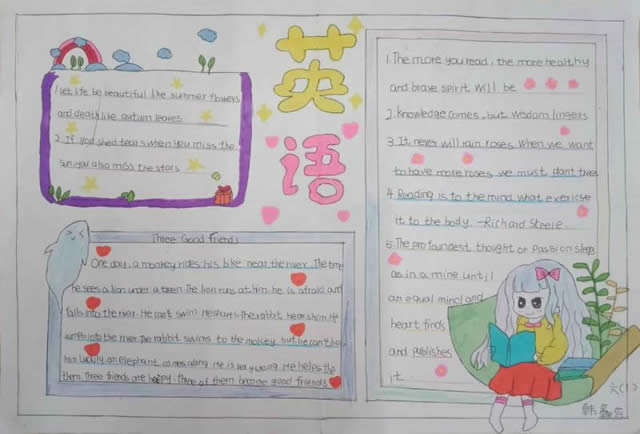 英语
1 Let life be beautiful like summer flowers
and death like autum leaves
2. If you shed tears when you miss the
sun, you also miss the stars
Three Good friends
One day, a monkey rides his bike near the river. The time
he sees a lion under a tree. The lion runs at him. he is afraid and
falls into the river. He can't swim. He shouts. The rabbit hears him. He
jumps into the river. The rabbit swims to the mokey, but he can't help
him. Luckily, an elephant comes along. He is very strong. He helps the
them. Three friends are happy. Three of them become good friends.
1. The more you read, the more healthy
and brave spirit will be
2. knowledge comes, but wisdom lingers
3 It never will rain roses. When we want
to have more roses we must plant trees
4. Reading is to the mind what exericse
it to the body. -Richard Steele.
5. The profoundest thought or passion sleeps
as in a mine until
an equal mind and
heart finds
and publishes
it
六(1)
韩